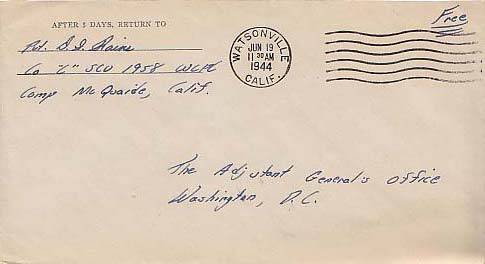 AFTER 5 DAYS, RETURN TO
Pvt. D. D. Raine
Co "C" SCU 1958 WCPC
Camp McQuaide, Calif.
WATSONVILLE
JUN 19
11 30 AM
1944
CALIF.
Free
The Adjutant General's Office
Washington, D.C.